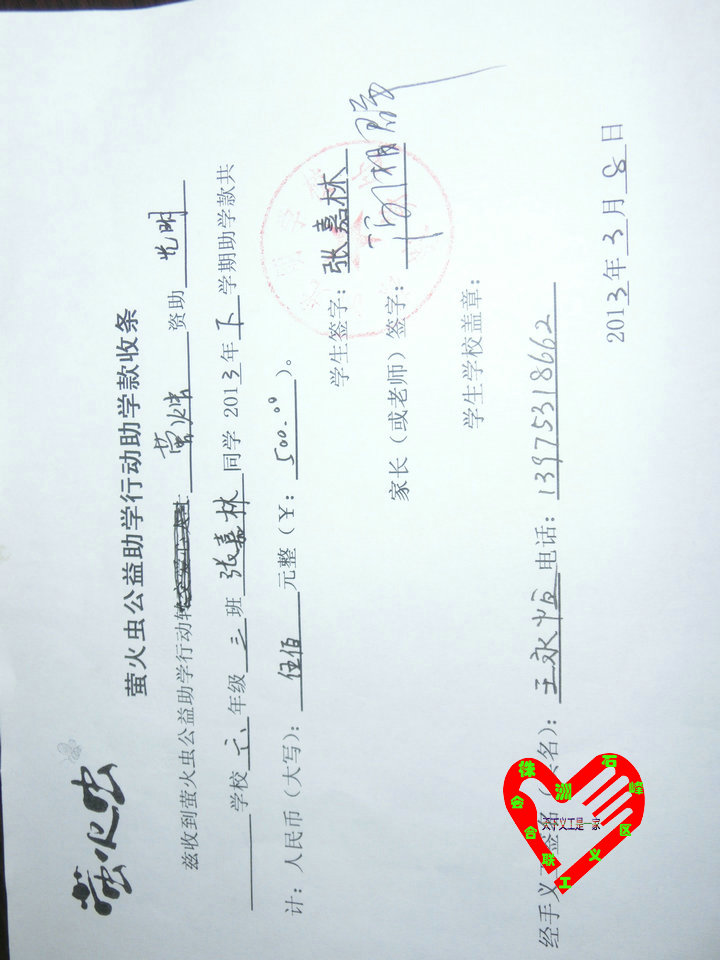 萤火虫
萤火虫公益助学行动助学款收条
兹收到萤火虫公益助学行动转 萤火虫 资助 光明
学校 六 年级 三 班 张嘉林 同学 2013 年 下 学期助学款共
计：人民币（大写）： 伍佰 元整（￥： 500.00 ）。
学生签字： 张嘉林
家长（或老师）签字：
学生学校盖章：
经手义工签名（ 名）： 王永恒 电话： 13975318662
2013 年 3 月 8 日
株洲石峰区义工联合会
义工是一家